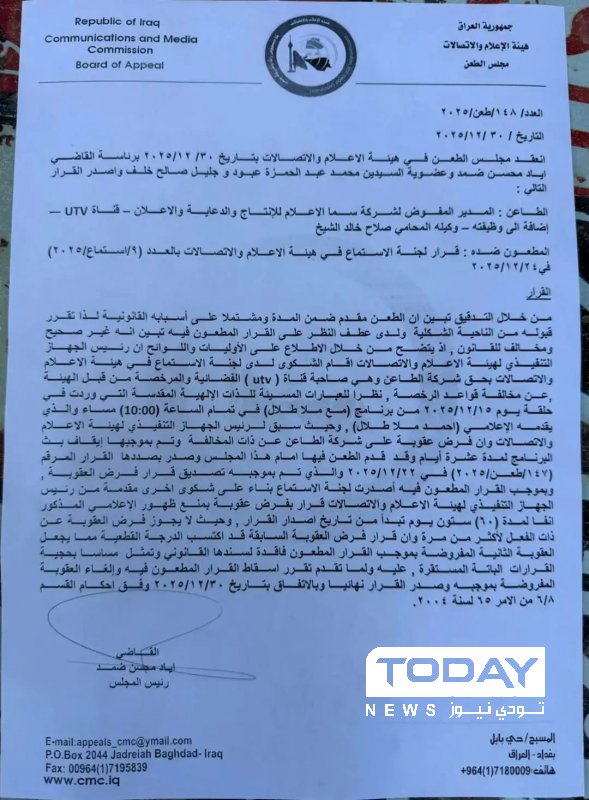 Republic of Iraq
Communications and Media
Commission
Board of Appeal
جمهورية العراق
هيئة الإعلام والاتصالات
مجلس الطعن
العدد/ ١٤٨/طعن/٢٠٢٥
التاريخ / ٣٠ /٢٠٢٥/١٢
انعقد مجلس الطعن في هيئة الاعلام والاتصالات بتاريخ ٢٠٢٥/١٢/٣٠ برئاسة القاضي
اياد محسن ضمد وعضوية السيدين محمد عبد الحمزة عبود و جليل صالح خلف واصدر القرار
التالي :
الطاعن : المدير المفوض لشركة سما الاعلام للإنتاج والدعاية والاعلان – قناة UTV –
إضافة الى وظيفته – وكيله المحامي صلاح خالد الشيخ
المطعون ضده : قرار لجنة الاستماع في هيئة الاعلام والاتصالات بالعدد (٩/استماع/٢٠٢٥)
في ٢٠٢٥/١٢/٢٤
القرار
من خلال التدقيق تبين ان الطعن مقدم ضمن المدة ومشتملا على أسبابه القانونية لذا تقرر
قبوله من الناحية الشكلية ولدى عطف النظر على القرار المطعون فيه تبين انه غير صحيح
ومخالف للقانون , اذ يتضح من خلال الاطلاع على الأوليات واللوائح ان رئيس الجهاز
التنفيذي لهيئة الاعلام والاتصالات اقام الشكوى لدى لجنة الاستماع في هيئة الاعلام
والاتصالات بحق شركة الطاعن وهي صاحبة قناة ( utv ) الفضائية والمرخصة من قبل الهيئة
,عن مخالفة قواعد الرخصة , نظرا للعبارات المسيئة للذات الإلهية المقدسة التي وردت في
حلقة يوم ٢٠٢٥/١٢/١٥ من برنامج (مع ملا طلال) في تمام الساعة (10:00) مساء والذي
يقدمه الإعلامي (احمد ملا طلال) , وحيث سبق لرئيس الجهاز التنفيذي لهيئة الاعلام
والاتصالات وان فرض عقوبة على شركة الطاعن عن ذات المخالفة وتم بموجبها إيقاف بث
البرنامج لمدة عشرة أيام وقد قدم الطعن فيها امام هذا المجلس وصدر بصددها القرار المرقم
(١٤٧/طعن/٢٠٢٥) في ٢٠٢٥/١٢/٢٢ والذي تم بموجبه تصديق قرار فرض العقوبة ,
وبموجب القرار المطعون فيه أصدرت لجنة الاستماع بناء على شكوى اخرى مقدمة من رئيس
الجهاز التنفيذي لهيئة الاعلام والاتصالات قرار بفرض عقوبة بمنع ظهور الإعلامي المذكور
انفا لمدة (٦٠) ستون يوم تبدأ من تاريخ اصدار القرار , وحيث لا يجوز فرض العقوبة عن
ذات الفعل لأكثر من مرة وان قرار فرض العقوبة السابقة قد اكتسب الدرجة القطعية مما يجعل
العقوبة الثانية المفروضة بموجب القرار المطعون فاقدة لسندها القانوني وتمثل مساسا بحجية
القرارات الباتة المستقرة , عليه ولما تقدم تقرر اسقاط القرار المطعون فيه وإلغاء العقوبة
المفروضة بموجبه وصدر القرار نهائيا وبالاتفاق بتاريخ ٢٠٢٥/١٢/٣٠ وفق احكام القسم
٦/٨ من الامر ٦٥ لسنة ٢٠٠٤ .
القاضي
اياد محسن ضمد
رئيس المجلس
TODAY
NEWS تودي نيوز
E-mail:appeals_cmc@ymail.com
P.O.Box 2044 Jadreiah Baghdad- Iraq
Fax: 00964(1)7195839
www.cmc.iq
المسبح/ حي بابل
بغداد - العراق
هاتف: 7180009(1)964+